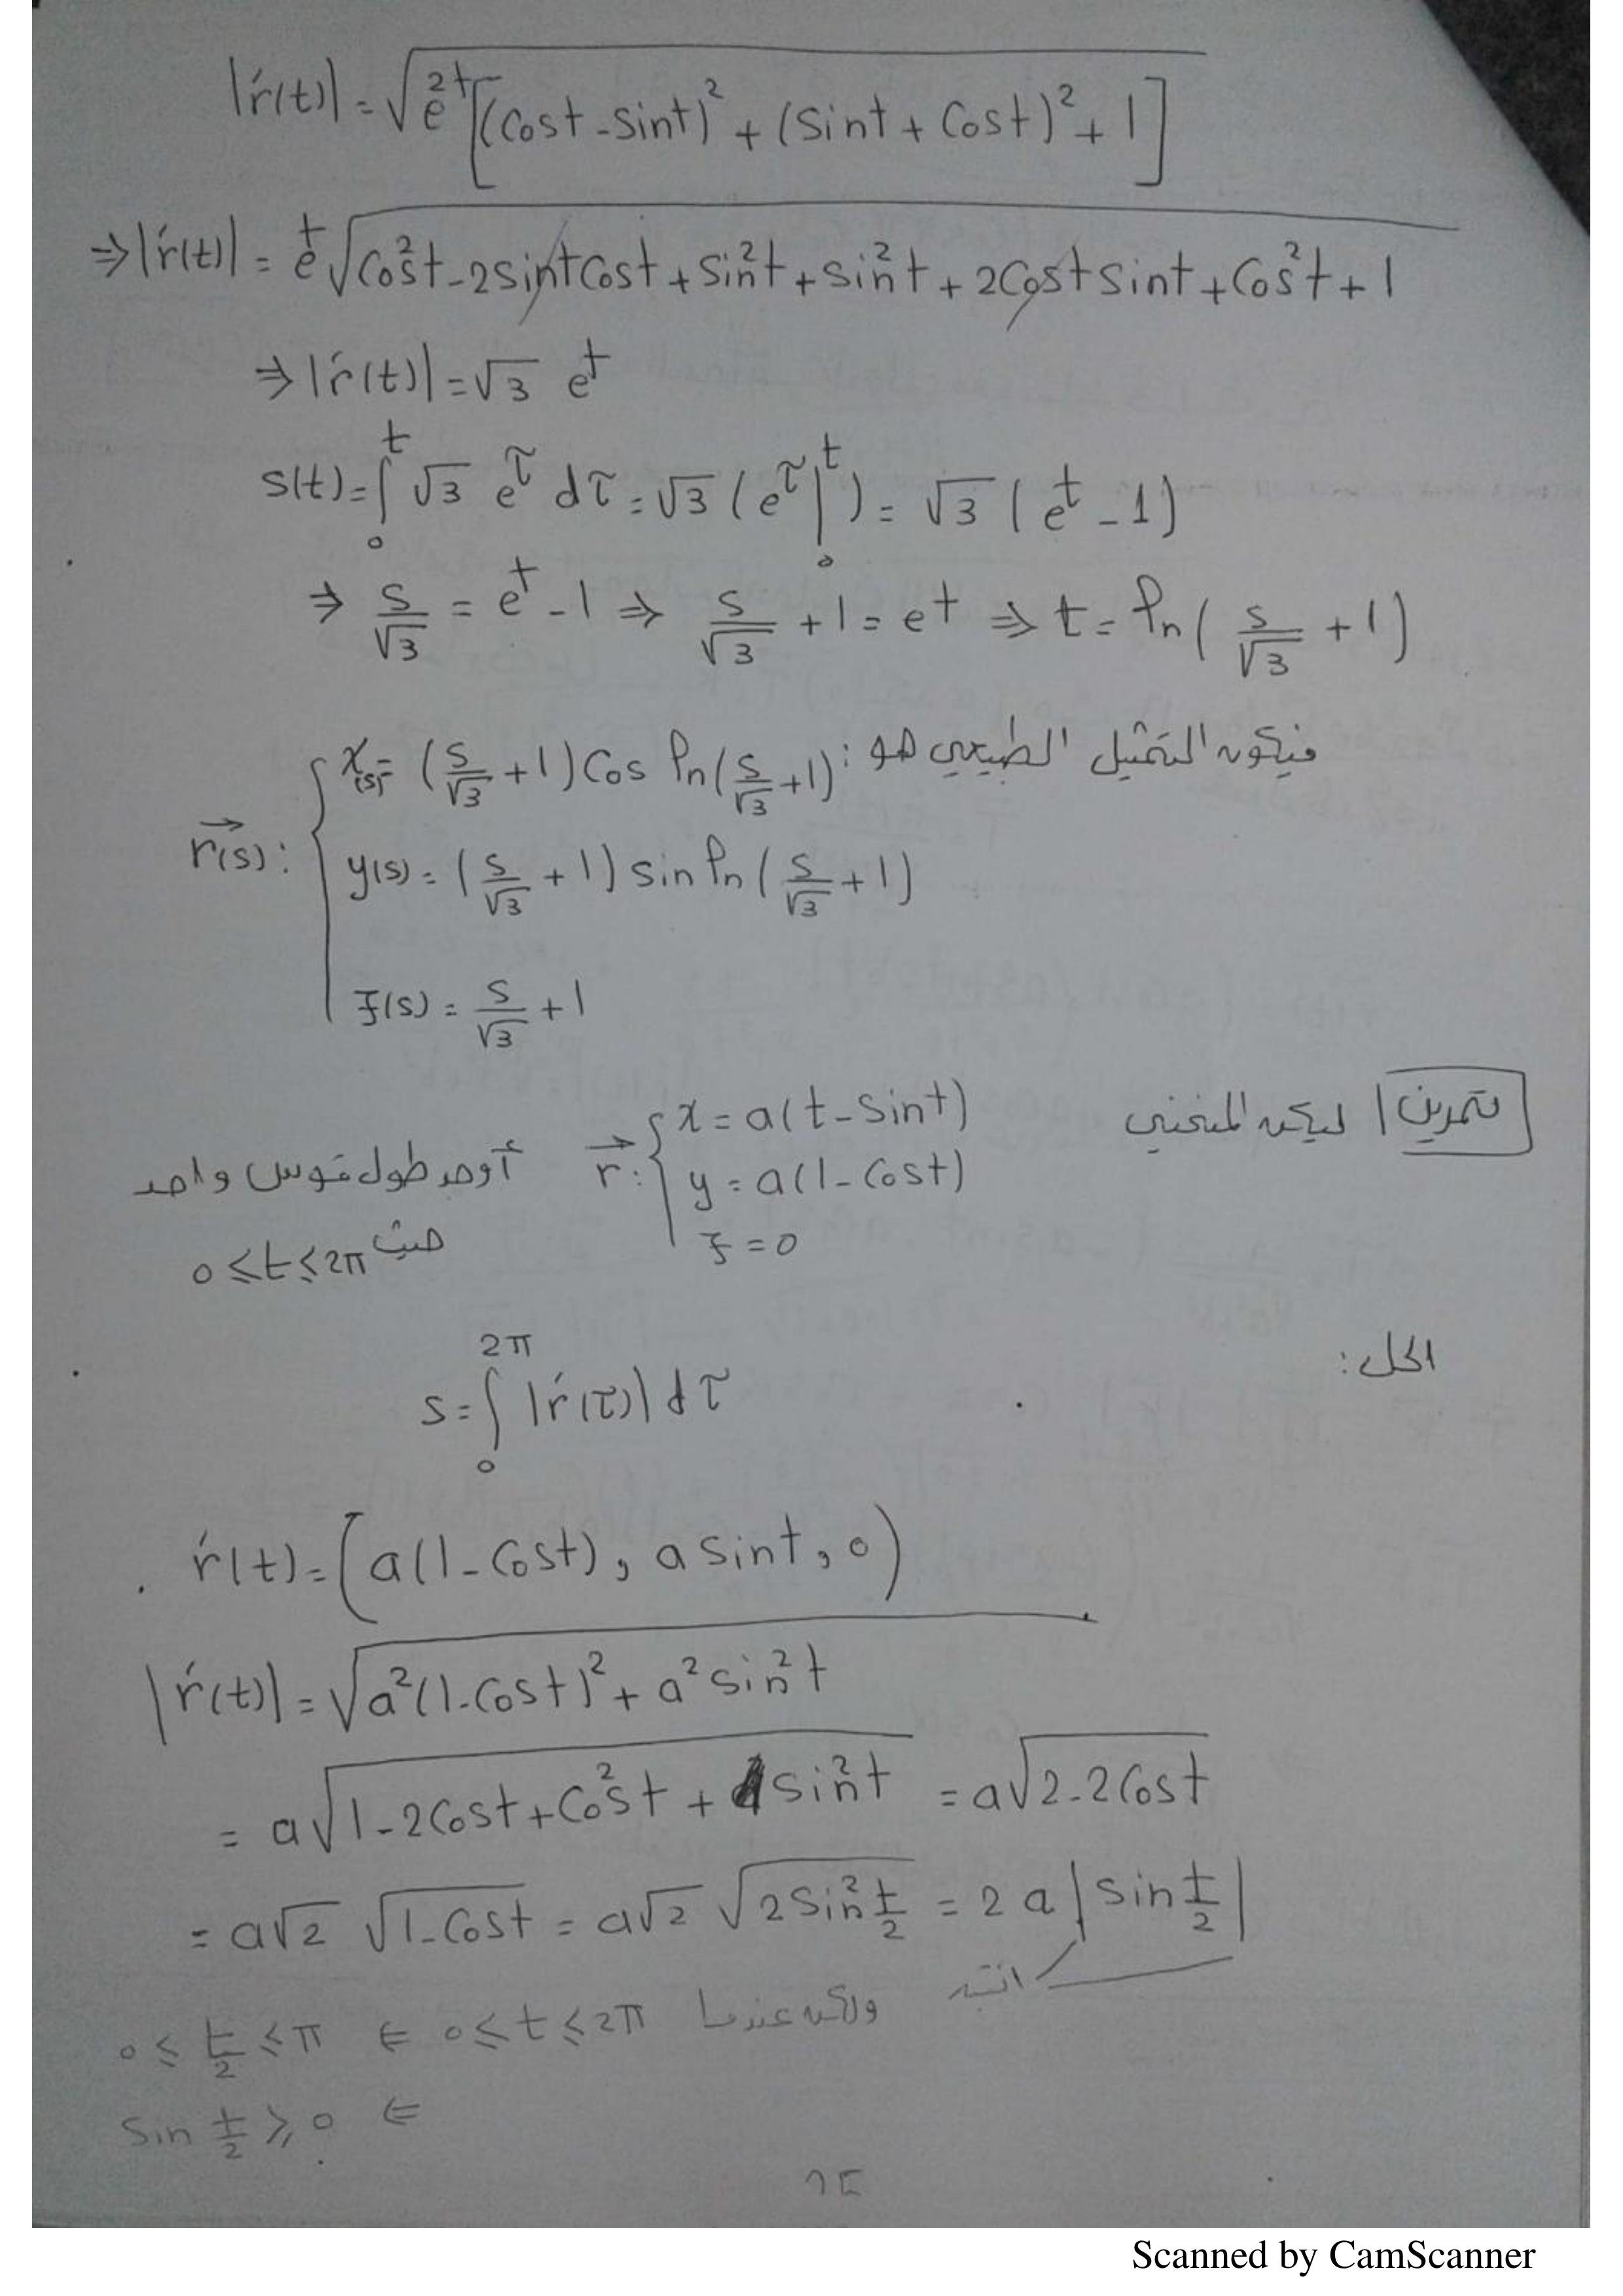 |ŕ(t)| = √(e^2t [(Cost - Sint)² + (Sint + Cost)² + 1])
⇒ |ŕ(t)| = e^t √(Cos²t - 2 Sint Cost + Sin²t + Sin²t + 2 Cost Sint + Cos²t + 1)
⇒ |ŕ(t)| = √3 e^t
s(t) = ∫₀^t √3 e^τ dτ = √3 (e^τ |₀^t) = √3 (e^t - 1)
⇒ s/√3 = e^t - 1 ⇒ s/√3 + 1 = e^t ⇒ t = ln(s/√3 + 1)
فيكون التمثيل الطبيعي هو:
r⃗(s): { x(s) = (s/√3 + 1) Cos ln(s/√3 + 1)
y(s) = (s/√3 + 1) sin ln(s/√3 + 1)
z(s) = s/√3 + 1
تمرين ليكن المنحني r⃗: { x = a(t - Sint)
y = a(1 - Cost)
z = 0
أوجد طول قوس واحد
حيث 0 ≤ t ≤ 2π
الحل:
s = ∫₀^2π |ŕ(τ)| dτ
ŕ(t) = (a(1 - Cost), a Sint, 0)
|ŕ(t)| = √(a²(1 - Cost)² + a² Sin²t)
= a√(1 - 2 Cost + Cos²t + Sin²t) = a√(2 - 2 Cost)
= a√2 √(1 - Cost) = a√2 √(2 Sin² t/2) = 2 a |Sin t/2|
انتبه
ولكن عندما 0 ≤ t ≤ 2π ⇐ 0 ≤ t/2 ≤ π
⇐ Sin t/2 ≥ 0
Scanned by CamScanner